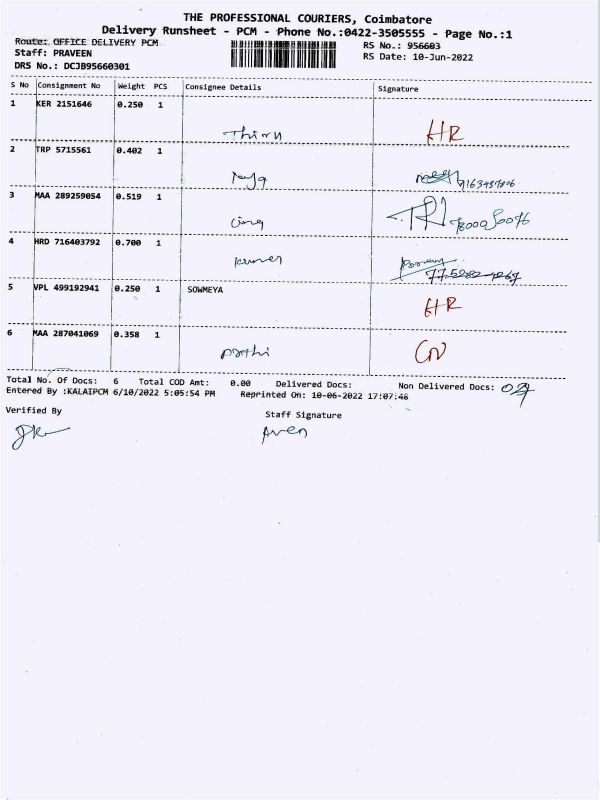 THE PROFESSIONAL COURIERS, Coimbatore
Delivery Runsheet - PCM - Phone No.:0422-3505555 - Page No.:1
Route: OFFICE DELIVERY PCM
RS No.: 956603
Staff: PRAVEEN
RS Date: 10-Jun-2022
DRS No.: DCJB95660301
S No Consignment No Weight PCS Consignee Details Signature
1 KER 2151646 0.250 1
Thiru HR
2 TRP 5715561 0.402 1
3 MAA 289259054 0.519 1
4 HRD 716403792 0.700 1
Kumar
5 VPL 499192941 0.250 1 SOWMEYA
HR
6 MAA 287041069 0.358 1
Total No. Of Docs: 6 Total COD Amt: 0.00 Delivered Docs: Non Delivered Docs:
Entered By :KALAIPCM 6/10/2022 5:05:54 PM Reprinted On: 10-06-2022 17:07:48
Verified By
Staff Signature